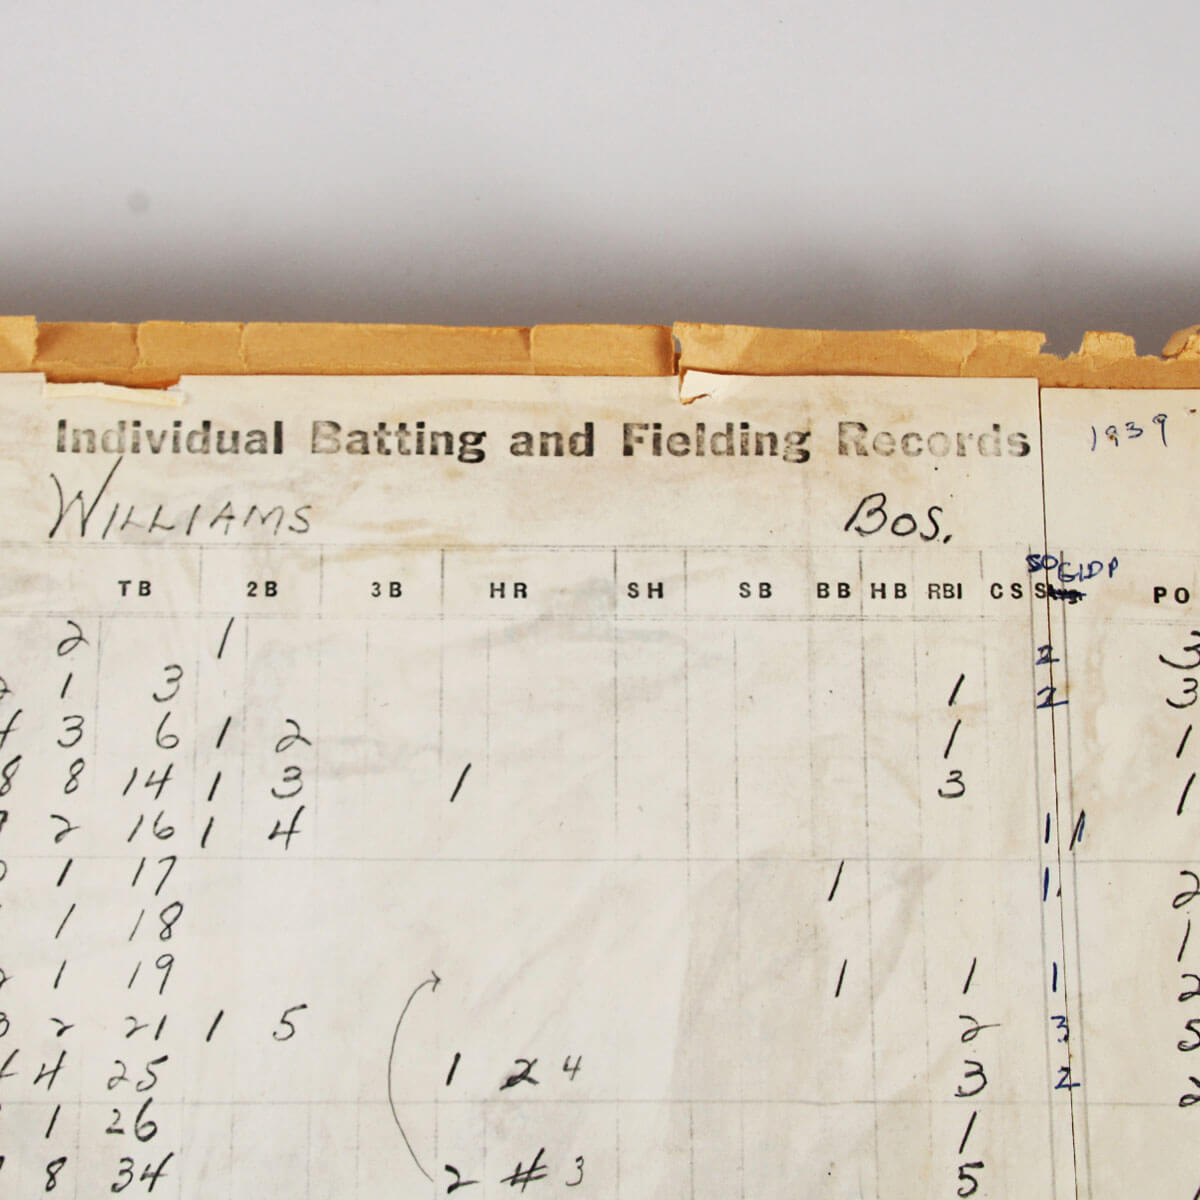 Individual Batting and Fielding Records
1939
WILLIAMS BOS.
SO GIDP
TB 2B 3B HR SH SB BB HB RBI CS PO
2 1 2 3
1 3 1 2 3
4 3 6 1 2 1 1
8 8 14 1 3 1 3 1
2 16 1 4 1 1
1 17 1 1 2
1 18 1
1 19 1 1 1 2
3 2 21 1 5 2 3 5
4 4 25 1 2 4 3 2 2
1 26 1
8 34 2 # 3 5